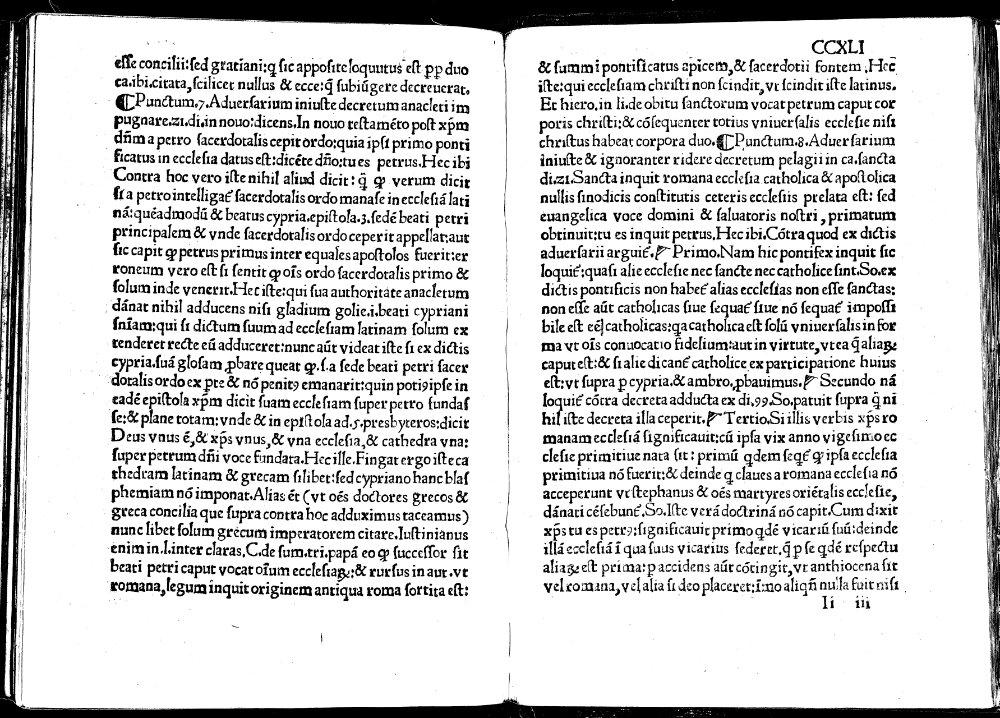 esse concilii: sed gratiani: q̃ sic apposite loquutus est ꝓp duo
ca. ibi. citata, scilicet nullus & ecce: q̃ subiũgere decreuerat.
¶ Punctum. 7. Aduersarium iniuste decretum anacleti im
pugnare. 21. di. in nouo: dicens. In nouo testamẽto post xp̃m
dñm a petro sacerdotalis cepit ordo: quia ipsi primo ponti
ficatus in ecclesia datus est: dicẽte dño: tu es petrus. Hec ibi
Contra hoc vero iste nihil aliud dicit: q̃ ꝙ verum dicit
si a petro intelligat̃ sacerdotalis ordo manasse in ecclesiã lati
nã: quẽadmodũ & beatus cypria. epistola. 3. sedẽ beati petri
principalem & vnde sacerdotalis ordo ceperit appellat: aut
sic capit ꝙ petrus primus inter equales apostolos fuerit: er
roneum vero est si sentit ꝙ oĩs ordo sacerdotalis primo &
solum inde venerit. Hec iste: qui sua authoritate anacletum
dãnat nihil adducens nisi gladium golie. i. beati cypriani
sñiam: qui si dictum suum ad ecclesiam latinam solum ex
tenderet recte eũ adduceret: nunc aũt videat iste si ex dictis
cypria. suã glosam ꝓbare queat ꝙ. s. a sede beati petri sacer
dotalis ordo ex pte & nõ penitꝰ emanarit: quin potiꝰ ipse in
eadẽ epistola xp̃m dicit suam ecclesiam super petro fundas
se: & plane totam: vnde & in epistola ad. 5. presbyteros: dicit
Deus vnus ẽ, & xp̃s vnus, & vna ecclesia, & cathedra vna:
super petrum dñi voce fundata. Hec ille. Fingat ergo iste ca
thedram latinam & grecam si libet: sed cypriano hanc blas
phemiam nõ imponat. Alias ẽt (vt oẽs doctores grecos &
greca concilia que supra contra hoc adduximus taceamus)
nunc libet solum grecum imperatorem citare. Iustinianus
enim in. l. inter claras, C. de sum. tri. papã eo ꝙ successor sit
beati petri caput vocat oĩum ecclesiaꝝ: & rursus in aut. vt
romana, legum inquit originem antiqua roma sortita est:
CCXLI
& summi põtificatus apicem, & sacerdotii fontem. Hec
iste: qui ecclesiam christi non scindit, vt scindit iste latinus.
Et hiero. in li. de obitu sanctorum vocat petrum caput cor
poris christi: & cõsequenter totius vniuersalis ecclesie nisi
christus habeat corpora duo. ¶ Punctum. 8. Aduersarium
iniuste & ignoranter ridere decretum pelagii in ca. sancta
di. 21. Sancta inquit romana ecclesia catholica & apostolica
nullis sinodicis constitutis ceteris ecclesiis prelata est: sed
euangelica voce domini & saluatoris nostri, primatum
obtinuit: tu es inquit petrus. Hec ibi. Cõtra quod ex dictis
aduersarii arguit̃. Primo. Nam hic pontifex inquit sic
loquit̃: quasi alie ecclesie nec sancte nec catholice sint. So. ex
dictis pontificis non habet̃ alias ecclesias non esse sanctas:
non esse aũt catholicas siue sequat̃ siue nõ sequat̃ impossi
bile est eẽ catholicas: qa catholica est solũ vniuersalis in for
ma vt oĩs conuocatio fidelium: aut in virtute, vt ea q̃ aliaꝝ
caput est: & si alie dicant̃ catholice ex participatione huius
est: vt supra p cypria. & ambro. ꝓbauimus. Secundo nã
loquit̃ cõtra decreta adducta ex di. 99. So. patuit supra q̃ ni
hil iste decreta illa ceperit. Tertio. Si illis verbis xp̃s ro
manam ecclesiã significauit: cũ ipsa vix anno vigesimo ec
clesie primitiue nata sit: primũ qdem seqt̃ ꝙ ipsa ecclesia
primitiua nõ fuerit: & deinde q claues a romana ecclesia nõ
acceperunt vt stephanus & oẽs martyres oriẽtalis ecclesie,
dãnati cẽsebunt̃. So. Iste verã doctrinã nõ capit. Cum dixit
xp̃s tu es petrꝰ: significauit primo qdẽ vicariũ suũ: deinde
illã ecclesiã ĩ qua suus vicarius sederet. q̃ p se qdẽ respectu
aliaꝝ est prima: p accidens aũt cõtingit, vt anthiocena sit
vel romana, vel alia si deo placeret: ĩmo aliqñ nulla fuit nisi
Ii iii